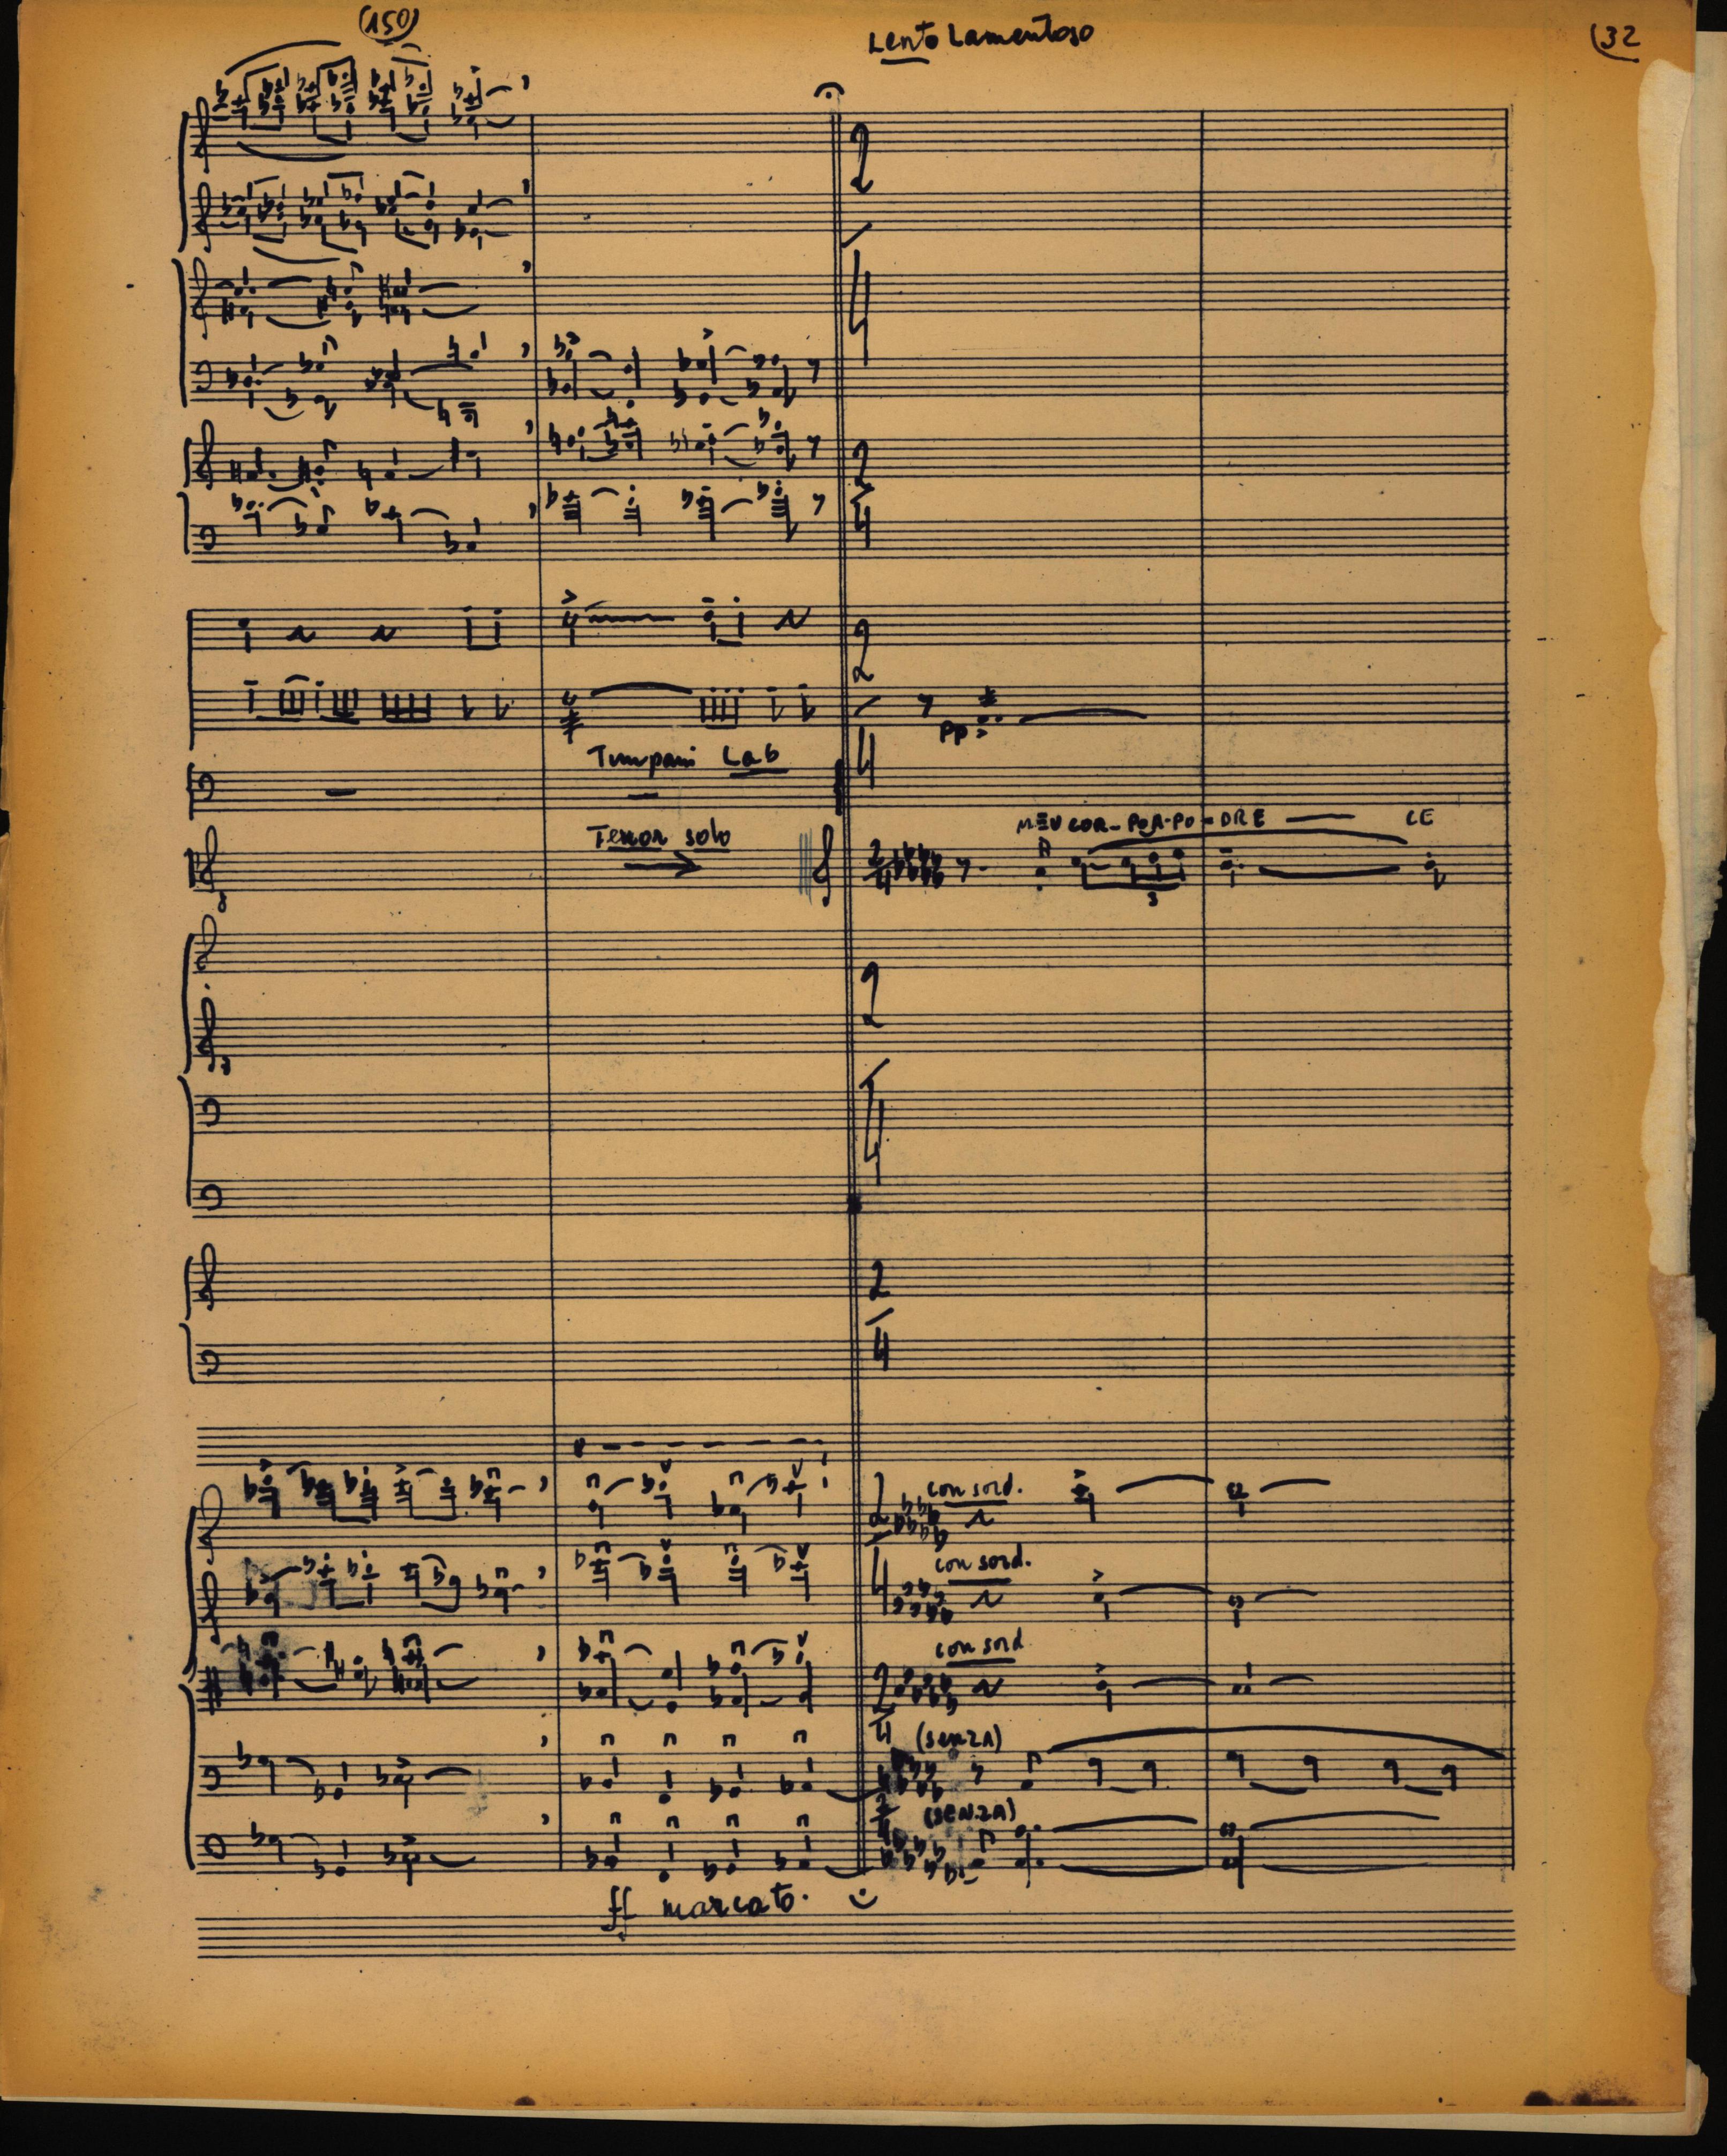 (150)
Lento Lamentoso
(32
2
4
2
4
2
4
pp
Timpani Lab
Tenor solo
MEU COR-PO A-PO-DRE CE
2
4
3
2
4
2
4
con sord.
2
4
con sord.
con sord
2
4
(senza)
2
4
(SENZA)
ff marcato.